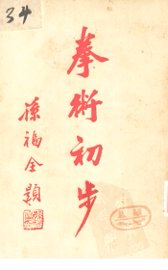 34
拳術初步
孫福全題